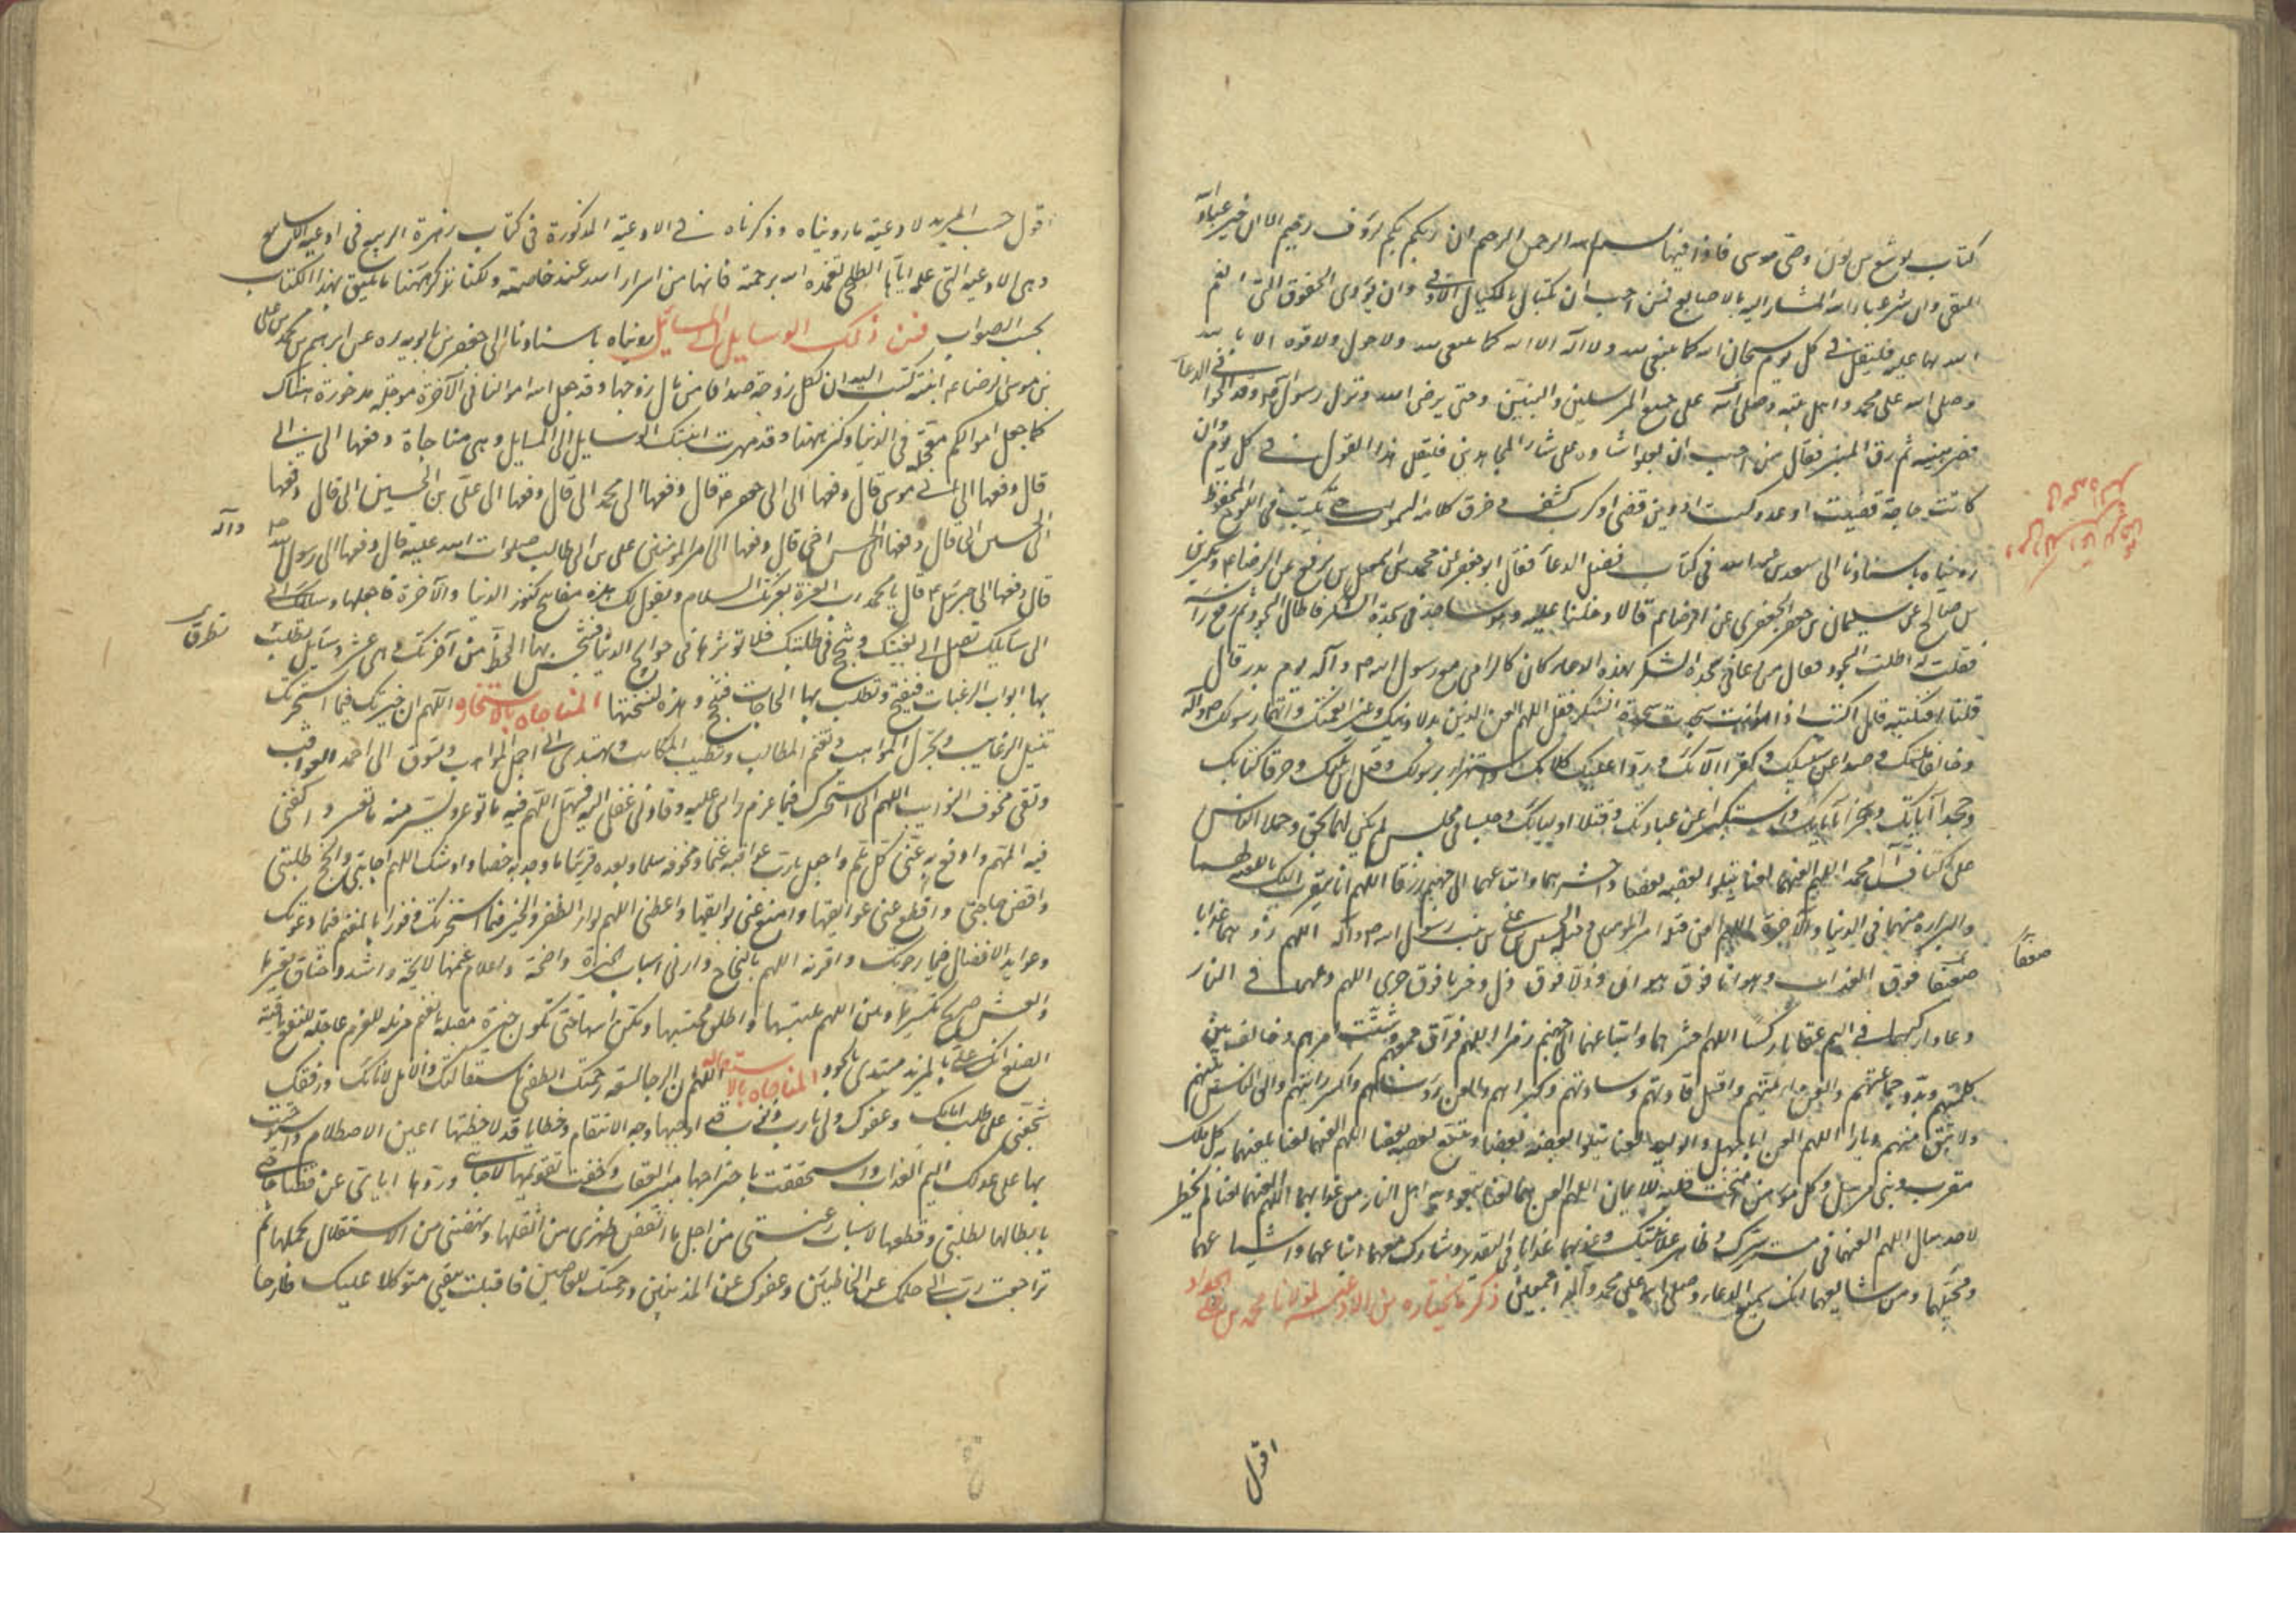 كتاب يوشع بن نون وصي موسى فاذا فيها بسم الله الرحمن الرحيم ان ربكم بكم لرؤف رحيم الا ان خير عباد الله
التقي وان شر عباد الله المشار اليه بالاصابع فمن احب ان يكتال بالمكيال الاوفى وان يؤدي الحقوق التي انعم
الله بها عليه فليقل في كل يوم سبحان الله كما ينبغي لله ولا اله الا الله كما ينبغي لله ولا حول ولا قوة الا بالله
وصلى الله على محمد واهل بيته وصلى الله على جميع المرسلين والنبيين وحتى يرضى الله ونزل رسول الله ص وقد الحوا في الدعاء
فصبر هنيئة ثم رقى المنبر فقال من احب ان يعلو ثناؤه على ثناء المجاهدين فليقل هذا القول في كل يوم وان
كانت حاجة قضيت او عدو كبت او دين قضي او كرب كشف وخرق كلامه السموات حتى يكتب في اللوح المحفوظ
رويناه باسنادنا الى سعد بن عبد الله في كتاب فضل الدعاء فقال ابو جعفر عن محمد بن اسمعيل بن بزيع عن الرضا ع وبكير
بن صالح عن سليمان بن جعفر الجعفري عن الرضا ع قالا دخلنا عليه وهو ساجد في سجدة الشكر فاطال السجود ثم رفع راسه
فقلت له اطلت السجود فقال من دعا في سجدة الشكر بهذا الدعاء كان كالرامي مع رسول الله ص وآله يوم بدر قال
قلنا فنكتبه قال اكتبا اذا انت سجدت سجدة الشكر فقل اللهم العن الذين بدلا دينك وغيرا نعمتك واتهما رسولك ص وآله
وخالفا ملتك وصدا عن سبيلك وكفرا آلاءك وردا عليك كلامك واستهزءا برسولك وقتلا ابن نبيك وحرفا كتابك
وجحدا آياتك وسخرا بآياتك واستكبرا عن عبادتك وقتلا اولياءك وجلسا في مجلس لم يكن لهما بحق وحملا الناس
على اكتاف آل محمد اللهم العنهما لعنا يتلو بعضه بعضا واحشرهما واتباعهما الى جهنم زرقا اللهم انا نتقرب اليك باللعنة لهما
والبراءة منهما في الدنيا والآخرة اللهم العن قتلة امير المؤمنين وقتلة الحسين بن علي بن بنت رسول الله ص وآله اللهم زدهما عذابا
ضعفا فوق العذاب وهوانا فوق هوان وذلا فوق ذل وخزيا فوق خزي اللهم دعهما في النار
دعا واركسهما في اليم عقابك ركسا اللهم احشرهما واتباعهما الى جهنم زمرا اللهم فرق جمعهم وشتت امرهم وخالف بين
كلمتهم وبدد جماعتهم والعن ائمتهم واقتل قادتهم وسادتهم وكبراءهم والعن رؤساءهم واكسر رايتهم والق البأس بينهم
ولا تبق منهم ديارا اللهم العن ابا جهل والوليد لعنا يتلو بعضه بعضا ويتبع بعضه بعضا اللهم العنهما لعنا يلعنهما به كل ملك
مقرب ونبي مرسل وكل مؤمن امتحنت قلبه للايمان اللهم العنهما لعنا يتعوذ منه اهل النار من عذابهما اللهم العنهما لعنا لم يخطر
لاحد ببال اللهم العنهما في مستسر سرك وظاهر علانيتك وعذبهما عذابا في التقدير وشارك معهما اتباعهما واشياعهما
ومحبيهما ومن شايعهما انك سميع الدعاء وصلى الله على محمد وآله اجمعين ذكر ما نختاره من الادعية لمولانا محمد بن علي الجواد
ضعفا
اقول
اقول حسب المريد لادعية ما رويناه وذكرناه في الادعية المذكورة في كتاب زهرة الربيع في ادعية الاسابيع
وهي الادعية التي علم اياها الطلحي تغمده الله برحمته فانها من اسرار الله عند خاصته ولكنا نذكر ههنا ما يليق بهذا الكتاب
بحسب الصواب فمن ذلك الوسايل الى المسايل رويناه باسنادنا الى جعفر بن بابويه ره عن ابرهيم بن محمد بن علي
بن موسى الرضا ع ابنته كتب اليه ان لكل زوجة صداقا من مال زوجها وقد جعل الله اموالنا في الآخرة مؤجلة مدخورة هناك
كما جعل اموالكم معجلة في الدنيا وكنزها هنا وقد مهرت ابنتك الوسايل الى المسايل وهي مناجاة دفعها الي ابي
قال دفعها الي ابي موسى قال دفعها الي ابي جعفر قال دفعها الي محمد ابي قال دفعها الي علي بن الحسين ابي قال دفعها
الي الحسين ابي قال دفعها الي الحسن اخي قال دفعها الي امير المؤمنين علي بن ابي طالب صلوات الله عليه قال دفعها الي رسول الله ص
قال دفعها الي جبرئيل ع قال يا محمد رب العزة يقرئك السلام ويقول لك هذه مفاتيح كنوز الدنيا والآخرة فاجعلها وسائلك
الى مسائلك تصل الى بغيتك وتنجح في طلبتك فلا تؤثرها في حوايج الدنيا فتبخس بها الحظ من آخرتك وهي عشر وسايل تطلب
بها ابواب الرغبات فتفتح وتطلب بها الحاجات فتنجح وهذه نسختها المناجاة بالاستخارة اللهم ان خيرتك فيما استخرتك
تنيل الرغايب وتجزل المواهب وتغنم المطالب وتطيب المكاسب وتهدي الى اجمل المذاهب وتسوق الى احمد العواقب
وتقي مخوف النوايب اللهم اني استخيرك فيما عزم رايي عليه وقادني عقلي اليه فسهل اللهم فيه ما توعر ويسر منه ما تعسر واكفني
فيه المهم وادفع به عني كل ملم واجعل يا رب عواقبه غنما ومخوفه سلما وبعده قربا وجدبه خصبا وارسل اللهم اجابتي وانجح طلبتي
واقض حاجتي واقطع عني عوايقها وامنع عني بوايقها واعطني اللهم لواء الظفر والخيرة فيما استخرتك وفوز المغنم فيما دعوتك
وعوايد الافضال فيما رجوتك واقرنه اللهم بالنجاح وارني اسباب الخيرة واضحة واعلام غنمها لايحة واشدد خناق تعسيرها
وانعش صريع تيسيرها وبين اللهم ملتبسها واطلق محتبسها ومكن اسها حتى تكون خيرة مقبلة بالغنم مزيلة للغرم عاجلة للنفع باقية
الصنع انك ملي بالمزيد مبتدئ بالجود المناجاة بالاستقالة اللهم ان الرجاء لسعة رحمتك انطقني باستقالتك والامل لاناتك ورفقك
شجعني على طلب امانك وعفوك ولي يا رب ذنوب قد واجهها وجه الانتقام وخطايا قد لاحظتها اعين الاصطلام واستوجبت
بها على عدلك اليم العذاب واستحققت باجتراحها مبير العقاب وخفت تعويقها لاجابتي وردها اياي عن قضاء حاجتي
بابطالها لطلبتي وقطعها لاسباب رغبتي من اجل ما انقض ظهري من ثقلها وبهظني من الاستقلال بحملها ثم
تراجعت رب الى حلمك عن الخاطئين وعفوك عن المذنبين ورحمتك للعاصين فاقبلت بثقتي متوكلا عليك طارحا
وآله